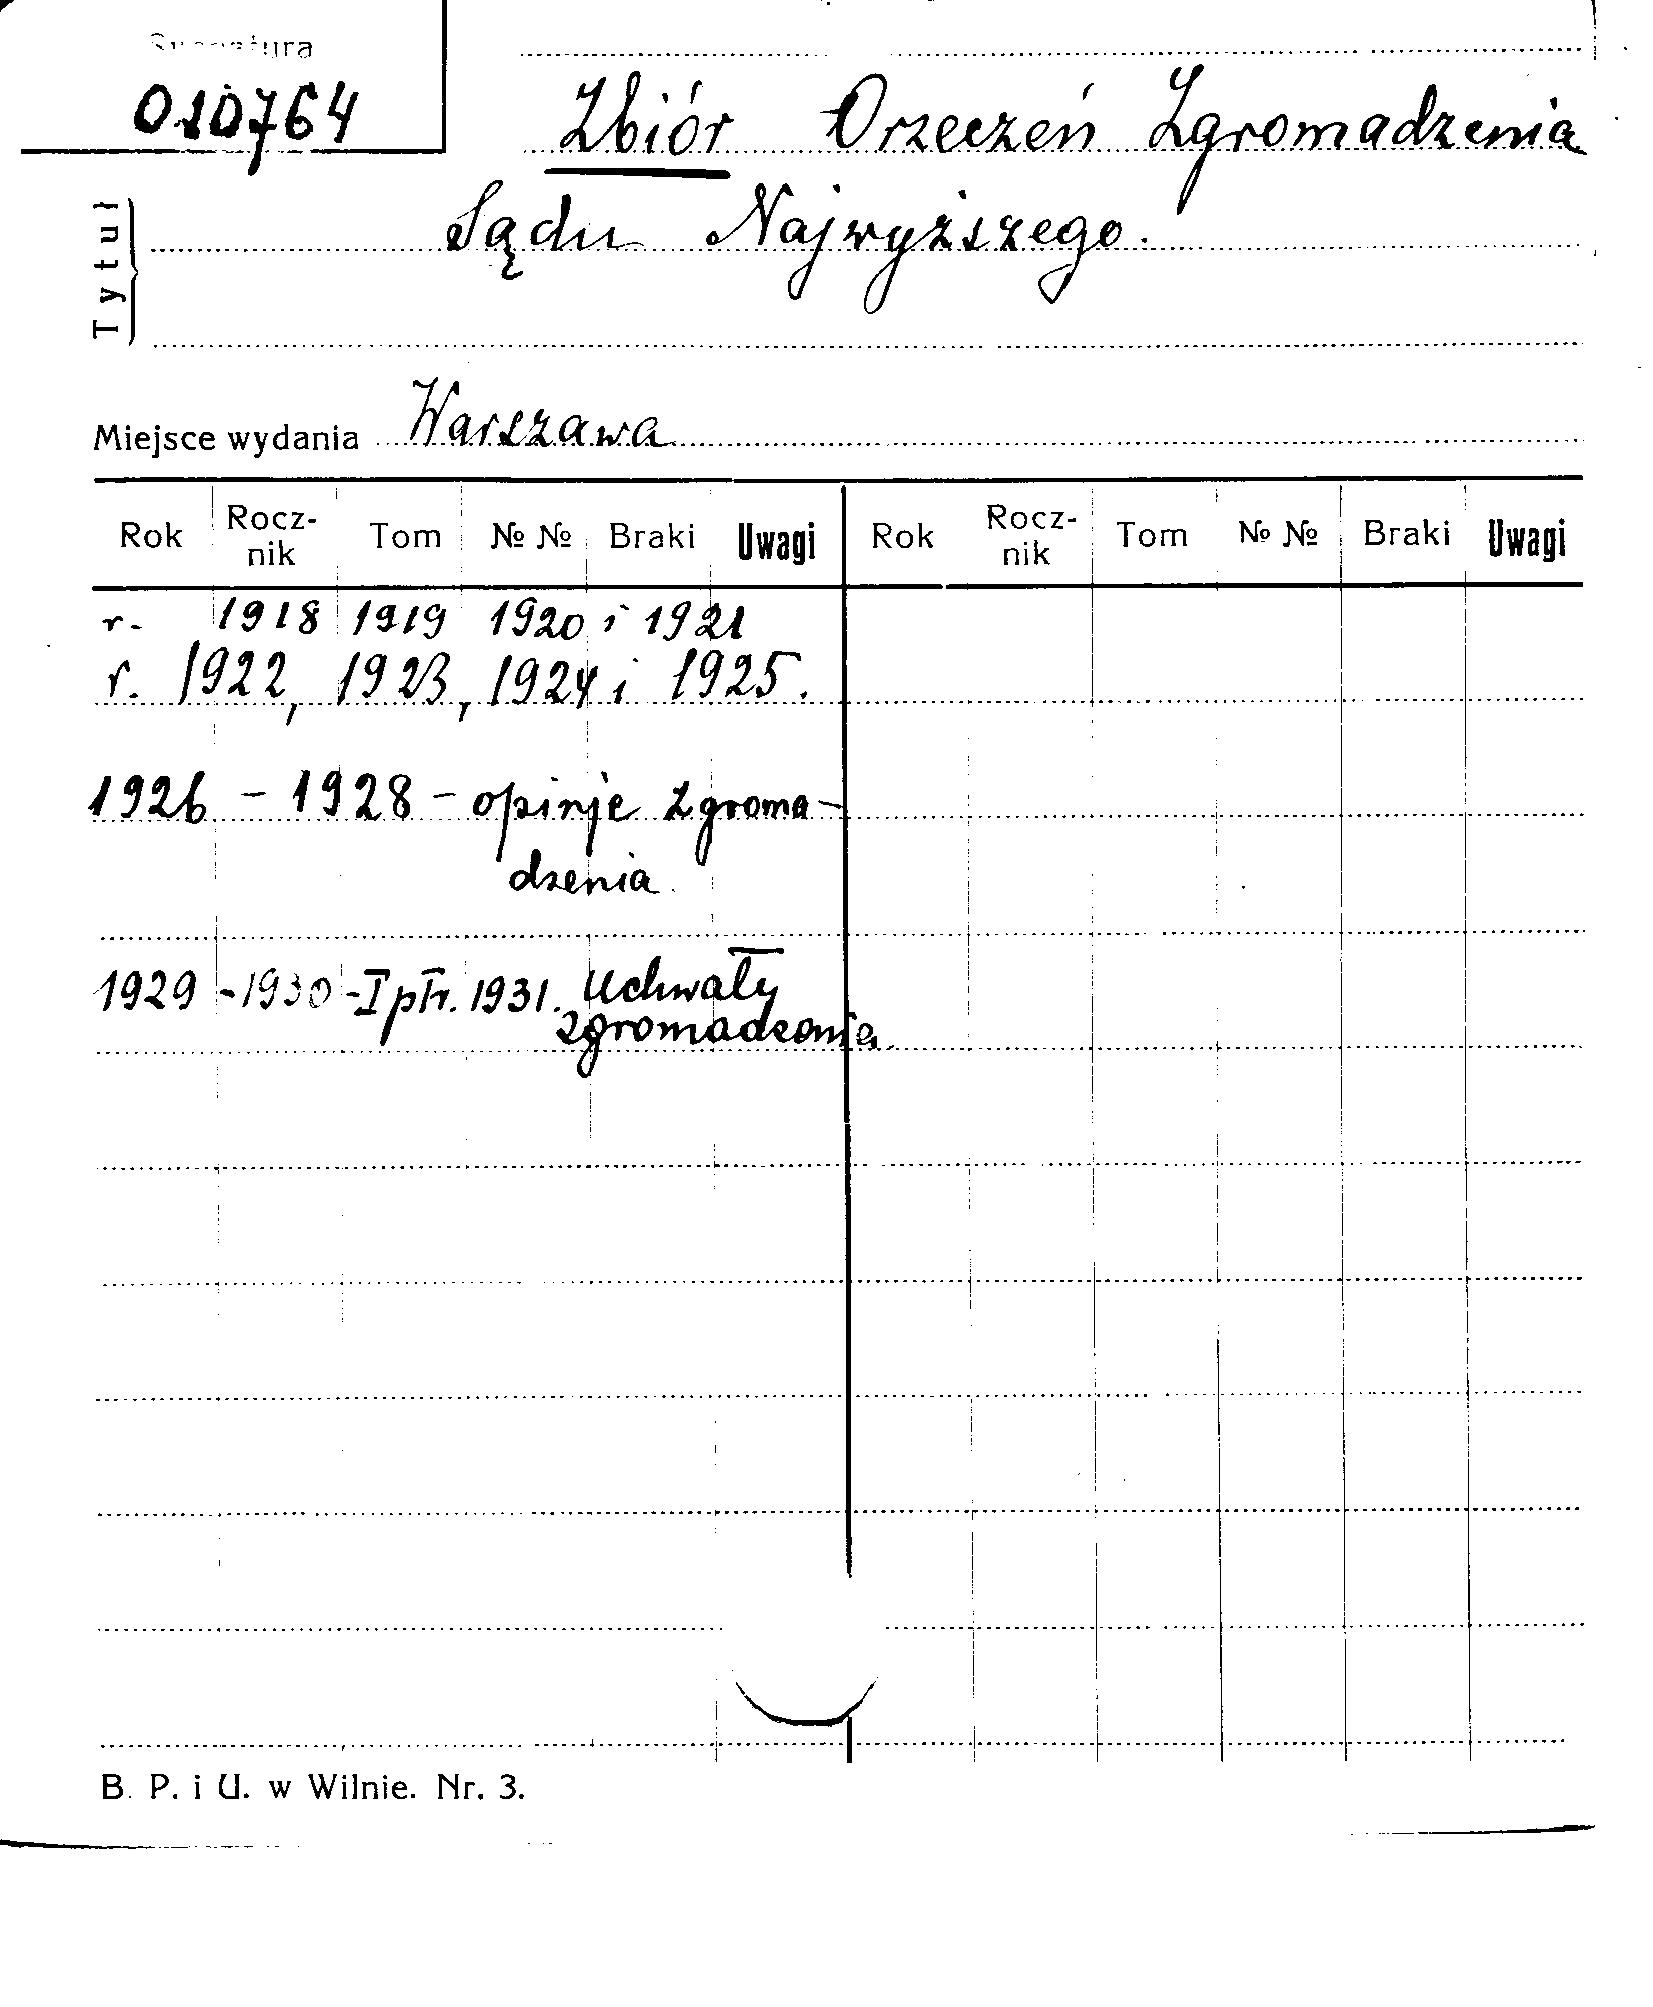 Sygnatura
010764
Zbiór Orzeczeń Zgromadzenia
Sądu Najwyższego.
Tytuł
Miejsce wydania Warszawa
Rok Rocz-nik Tom № № Braki Uwagi Rok Rocz-nik Tom № № Braki Uwagi
r. 1918 1919 1920 i 1921
r. 1922, 1923, 1924 i 1925.
1926 - 1928 - opinje zgroma-
dzenia.
1929 - 1930 - I płr. 1931. Uchwały
zgromadzenia.
B. P. i U. w Wilnie. Nr. 3.